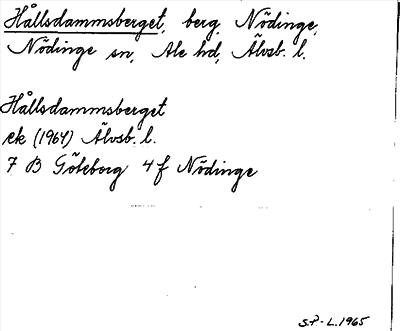 Hållsdammsberget, berg, Nödinge,
Nödinge sn, Ale hd, Älvsb. l.
Hållsdammsberget
ek (1964) Älvsb. l.
7 B Göteborg 4 f Nödinge
S.P-L. 1965